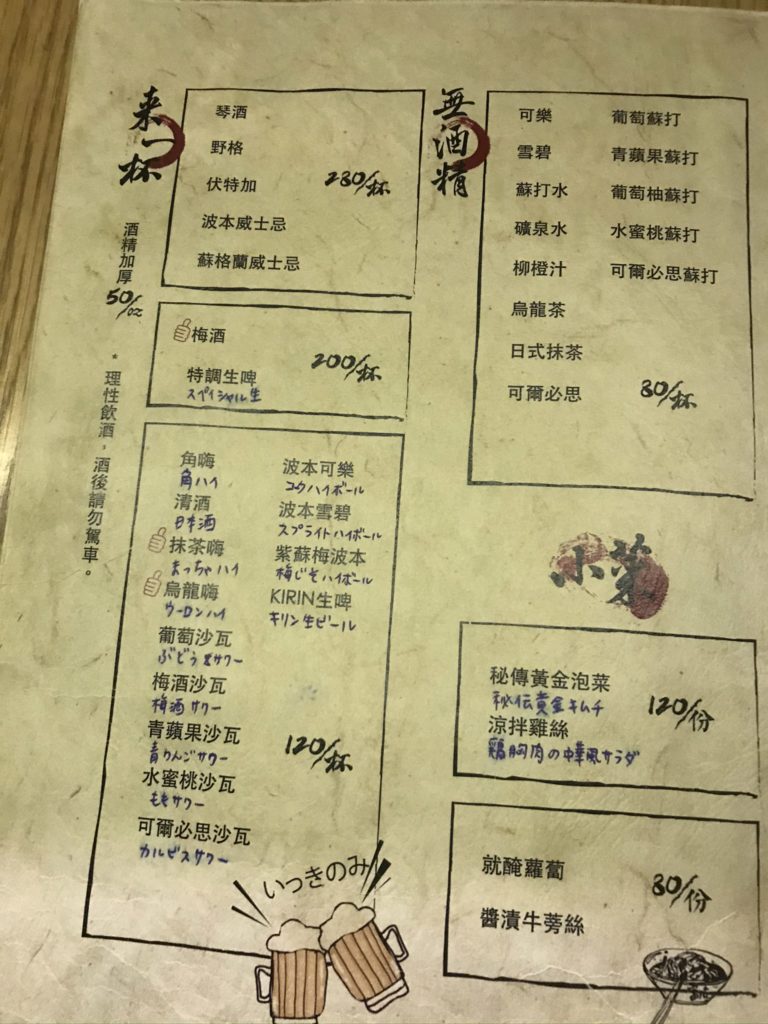 来一杯
琴酒
野格
伏特加
波本威士忌
蘇格蘭威士忌
230/杯
酒精加厚
50/oz
* 理性飲酒,酒後請勿駕車。
梅酒
特調生啤
スペイシャル生
200/杯
角嗨
角ハイ
清酒
日本酒
抹茶嗨
まっちゃハイ
烏龍嗨
ウーロンハイ
葡萄沙瓦
ぶどうサワー
梅酒沙瓦
梅酒サワー
青蘋果沙瓦
青りんごサワー
水蜜桃沙瓦
ももサワー
可爾必思沙瓦
カルピスサワー
波本可樂
コクハイボール
波本雪碧
スプライトハイボール
紫蘇梅波本
梅じそハイボール
KIRIN生啤
キリン生ビール
120/杯
いっきのみ
無酒精
可樂
雪碧
蘇打水
礦泉水
柳橙汁
烏龍茶
日式抹茶
可爾必思
葡萄蘇打
青蘋果蘇打
葡萄柚蘇打
水蜜桃蘇打
可爾必思蘇打
80/杯
小菜
秘傳黃金泡菜
秘伝黄金キムチ
涼拌雞絲
鶏胸肉の中華風サラダ
120/份
就醃蘿蔔
醬漬牛蒡絲
80/份